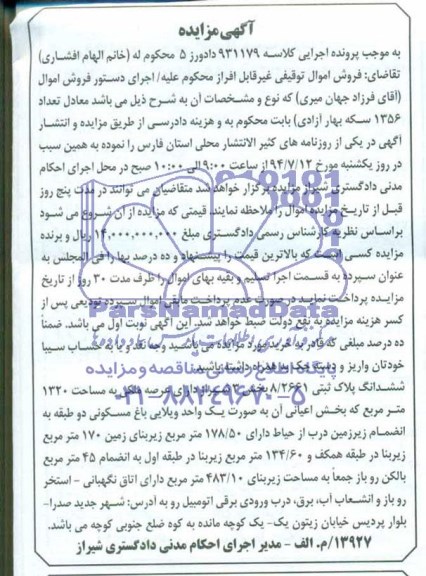 آگهی مزایده
به موجب پرونده اجرایی کلاسه ۹۳۱۱۷۹ دادورز ۵ محکوم له (خانم الهام افشاری)
تقاضای: فروش اموال توقیفی غیرقابل افراز محکوم علیه/ اجرای دستور فروش اموال
(آقای فرزاد جهان میری) که نوع و مشخصات آن به شرح ذیل می باشد معادل تعداد
۱۳۵۶ سکه بهار آزادی) بابت محکوم به و هزینه دادرسی از طریق مزایده و انتشار
آگهی در یکی از روزنامه های کثیر الانتشار محلی استان فارس را نموده به همین سبب
در روز یکشنبه مورخ ۹۴/۷/۱۲ از ساعت ۹:۰۰ الی ۱۰:۰۰ صبح در محل اجرای احکام
مدنی دادگستری شیراز مزایده برگزار خواهد شد متقاضیان می توانند در مدت پنج روز
قبل از تاریخ مزایده اموال را ملاحظه نمایند. قیمتی که مزایده از آن شروع می شود
براساس نظریه کارشناس رسمی دادگستری مبلغ ۱۴,۰۰۰,۰۰۰,۰۰۰ ریال و برنده
مزایده کسی است که بالاترین قیمت را پیشنهاد و ده درصد بها را فی المجلس به
عنوان سپرده به قسمت اجرا تسلیم و بقیه بهای اموال را ظرف مدت ۳۰ روز از تاریخ
مزایده پرداخت نماید در صورت عدم پرداخت مابقی اموال سپرده تودیعی پس از
کسر هزینه مزایده به نفع دولت ضبط خواهد شد. این آگهی نوبت اول می باشد. ضمناً
ده درصد مبلغی که قادر به خرید مورد مزایده می باشید وجه نقد و یا به حساب سیبا
خودتان واریز و دسته چک به همراه داشته باشید.
ششدانگ پلاک ثبتی ۸/۲۶۶۱ بخش دارای عرصه ملکی به مساحت ۱۳۲۰
متر مربع که بخش اعیانی آن به صورت یک واحد ویلایی باغ مسکونی دو طبقه به
انضمام زیرزمین درب از حیاط دارای ۱۷۸/۵۰ متر مربع زیربنای زمین ۱۷۰ متر مربع
زیربنا در طبقه همکف و ۱۳۴/۶۰ متر مربع زیربنا در طبقه اول به انضمام ۴۵ متر مربع
بالکن رو باز جمعاً به مساحت زیربنای ۴۸۳/۱۰ متر مربع دارای اتاق نگهبانی - استخر
رو باز و انشعاب آب، برق، درب ورودی برقی اتومبیل رو به آدرس: شهر جدید صدرا-
بلوار پردیس خیابان زیتون یک- یک کوچه مانده به کوه ضلع جنوبی کوچه می باشد.
۱۳۹۲۷/م. الف - مدیر اجرای احکام مدنی دادگستری شیراز
ParsNamadData
پایگاه اطلاع رسانی مناقصه و مزایده
۰۲۱-۸۸۳۴۹۶۷۰-۵